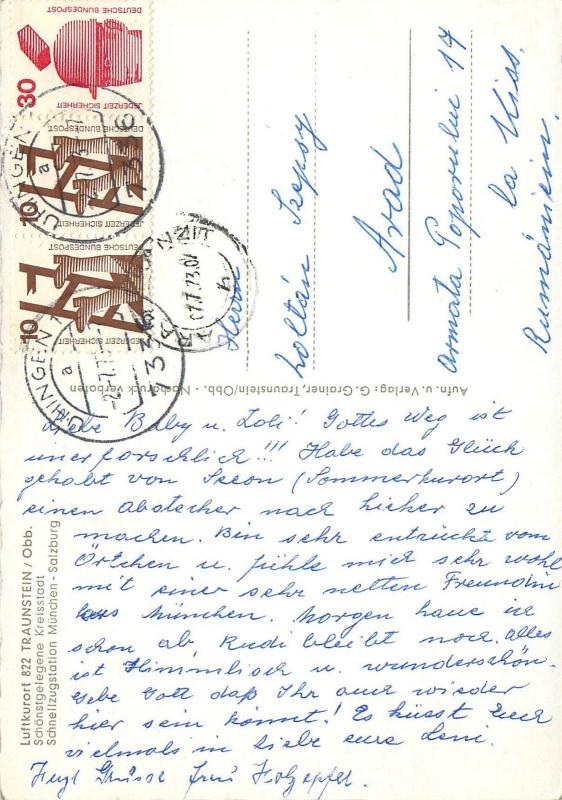 Luftkurort 822 TRAUNSTEIN / Obb.
Schönstgelegene Kreisstadt
Schnellzugstation München - Salzburg
Liebe Baby u. Loli! Gottes Weg ist
unerforschlich!!! Habe das Glück
gehabt von Seeon (Sommerkurort)
einen Abstecher nach hieher zu
machen. Bin sehr entzückt vom
Örtchen u. fühle mich sehr wohl
mit einer sehr netten Freundin
aus München. Morgen haue ich
schon ab, Rudi bleibt noch. Alles
ist Himmlisch u. wunderschön.
Gebe Gott daß Ihr auch wieder
hier sein könnt! Es küsst Euch
vielmals in Liebe eure Leni.
Grüsse Frau Holzapfel.
Aufn. u. Verlag: G. Grainer, Traunstein/Obb. - Nachdruck verboten
Herrn
Zoltán Szepsy
Arad
Armata Poporului 14
la Kiss.
Rumänien.
30
JEDERZEIT SICHERHEIT
DEUTSCHE BUNDESPOST
10
JEDERZEIT SICHERHEIT
DEUTSCHE BUNDESPOST
10
JEDERZEIT SICHERHEIT
DEUTSCHE BUNDESPOST
UHINGEN 1
a
7336
UHINGEN 1
a
7336
ARAD